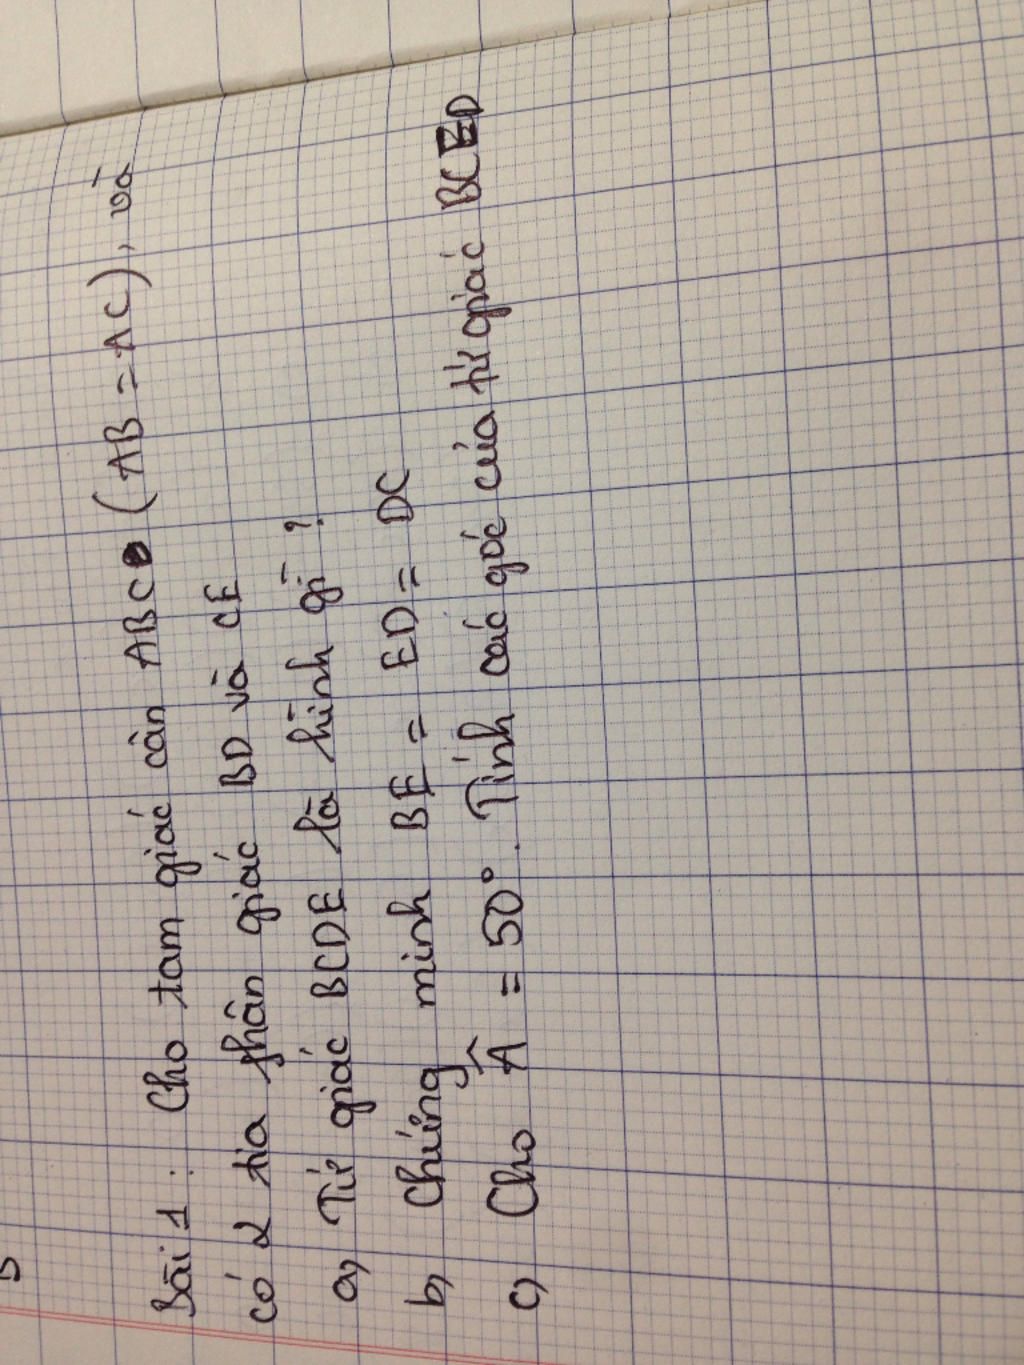 Bài 1 : Cho tam giác cân ABC (AB = AC), và
có 2 tia phân giác BD và CE
a, Tứ giác BCDE là hình gì ?
b, Chứng minh BE = ED = DC
c, Cho Â = 50°. Tính các góc của tứ giác BCED